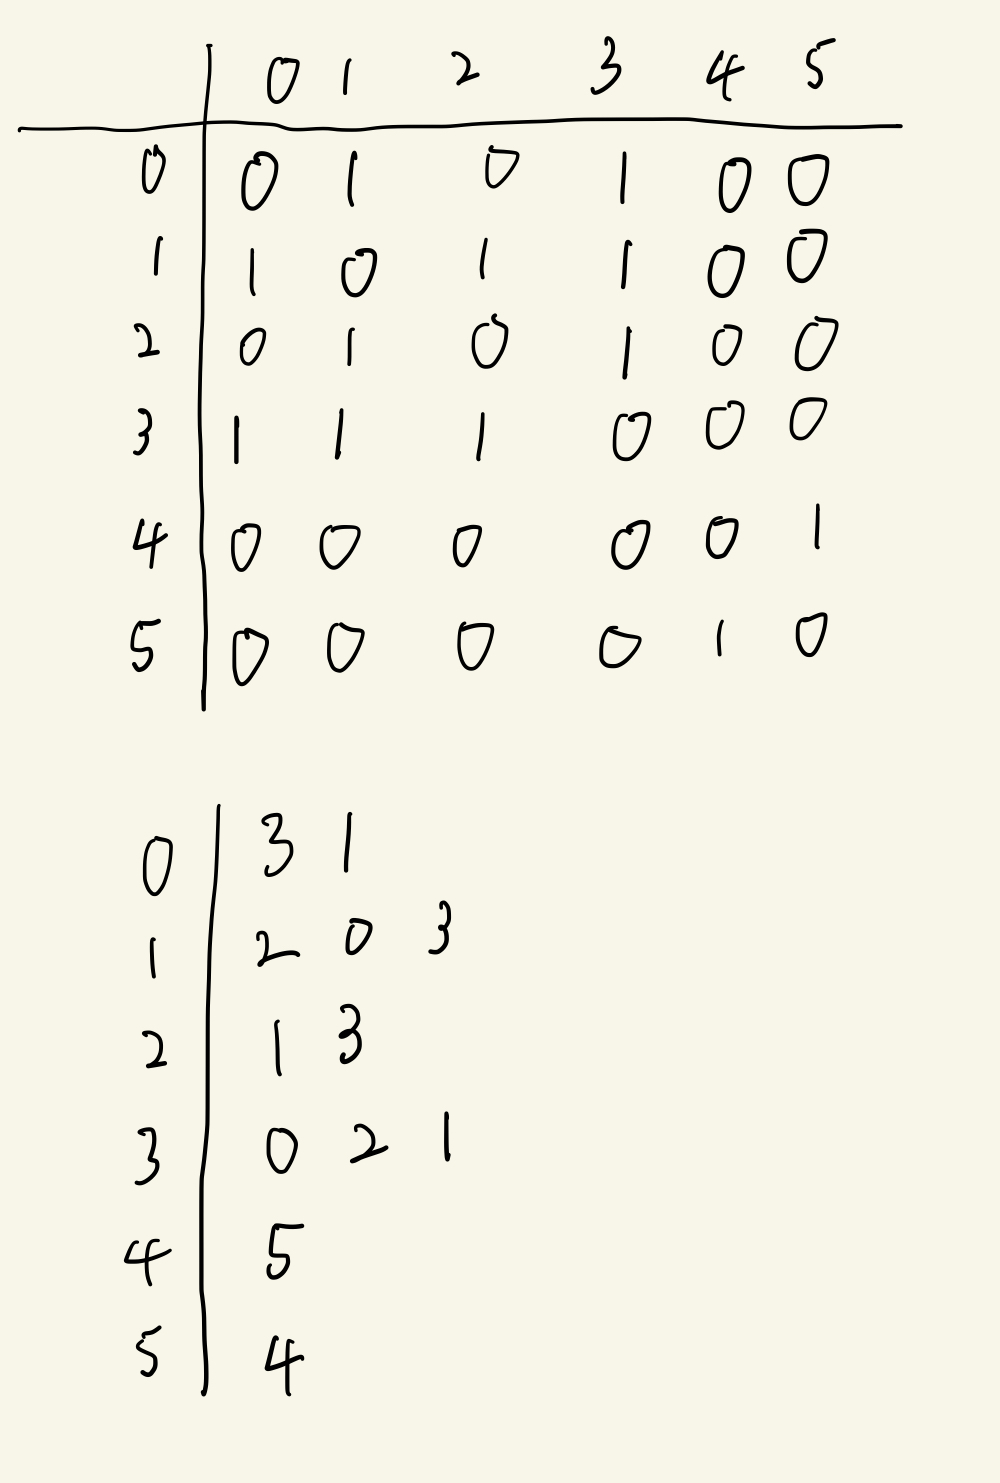 0 1 2 3 4 5
0 0 1 0 1 0 0
1 1 0 1 1 0 0
2 0 1 0 1 0 0
3 1 1 1 0 0 0
4 0 0 0 0 0 1
5 0 0 0 0 1 0
0 3 1
1 2 0 3
2 1 3
3 0 2 1
4 5
5 4